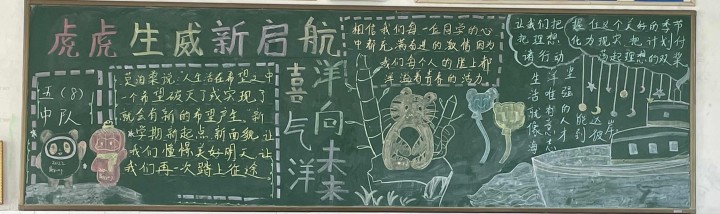 虎虎生威新启航
喜气洋洋向未来
五(8)
中队
莫泊桑说:人生活在希望之中
一个希望破灭了或实现了
就会有新的希望产生。新
学期新起点新面貌,让
我们憧憬美好明天,让
我们再一次踏上征途
相信我们每一位同学的心
中都充满奋进的激情因为
我们每个人的脸上都
洋溢着青春的活力
让我们把握住这个美好的季节
把理想化为现实,把计划付
诸行动
起理想的双桨
生活就像海
洋唯有意志
坚强的人才
能到
达彼
岸